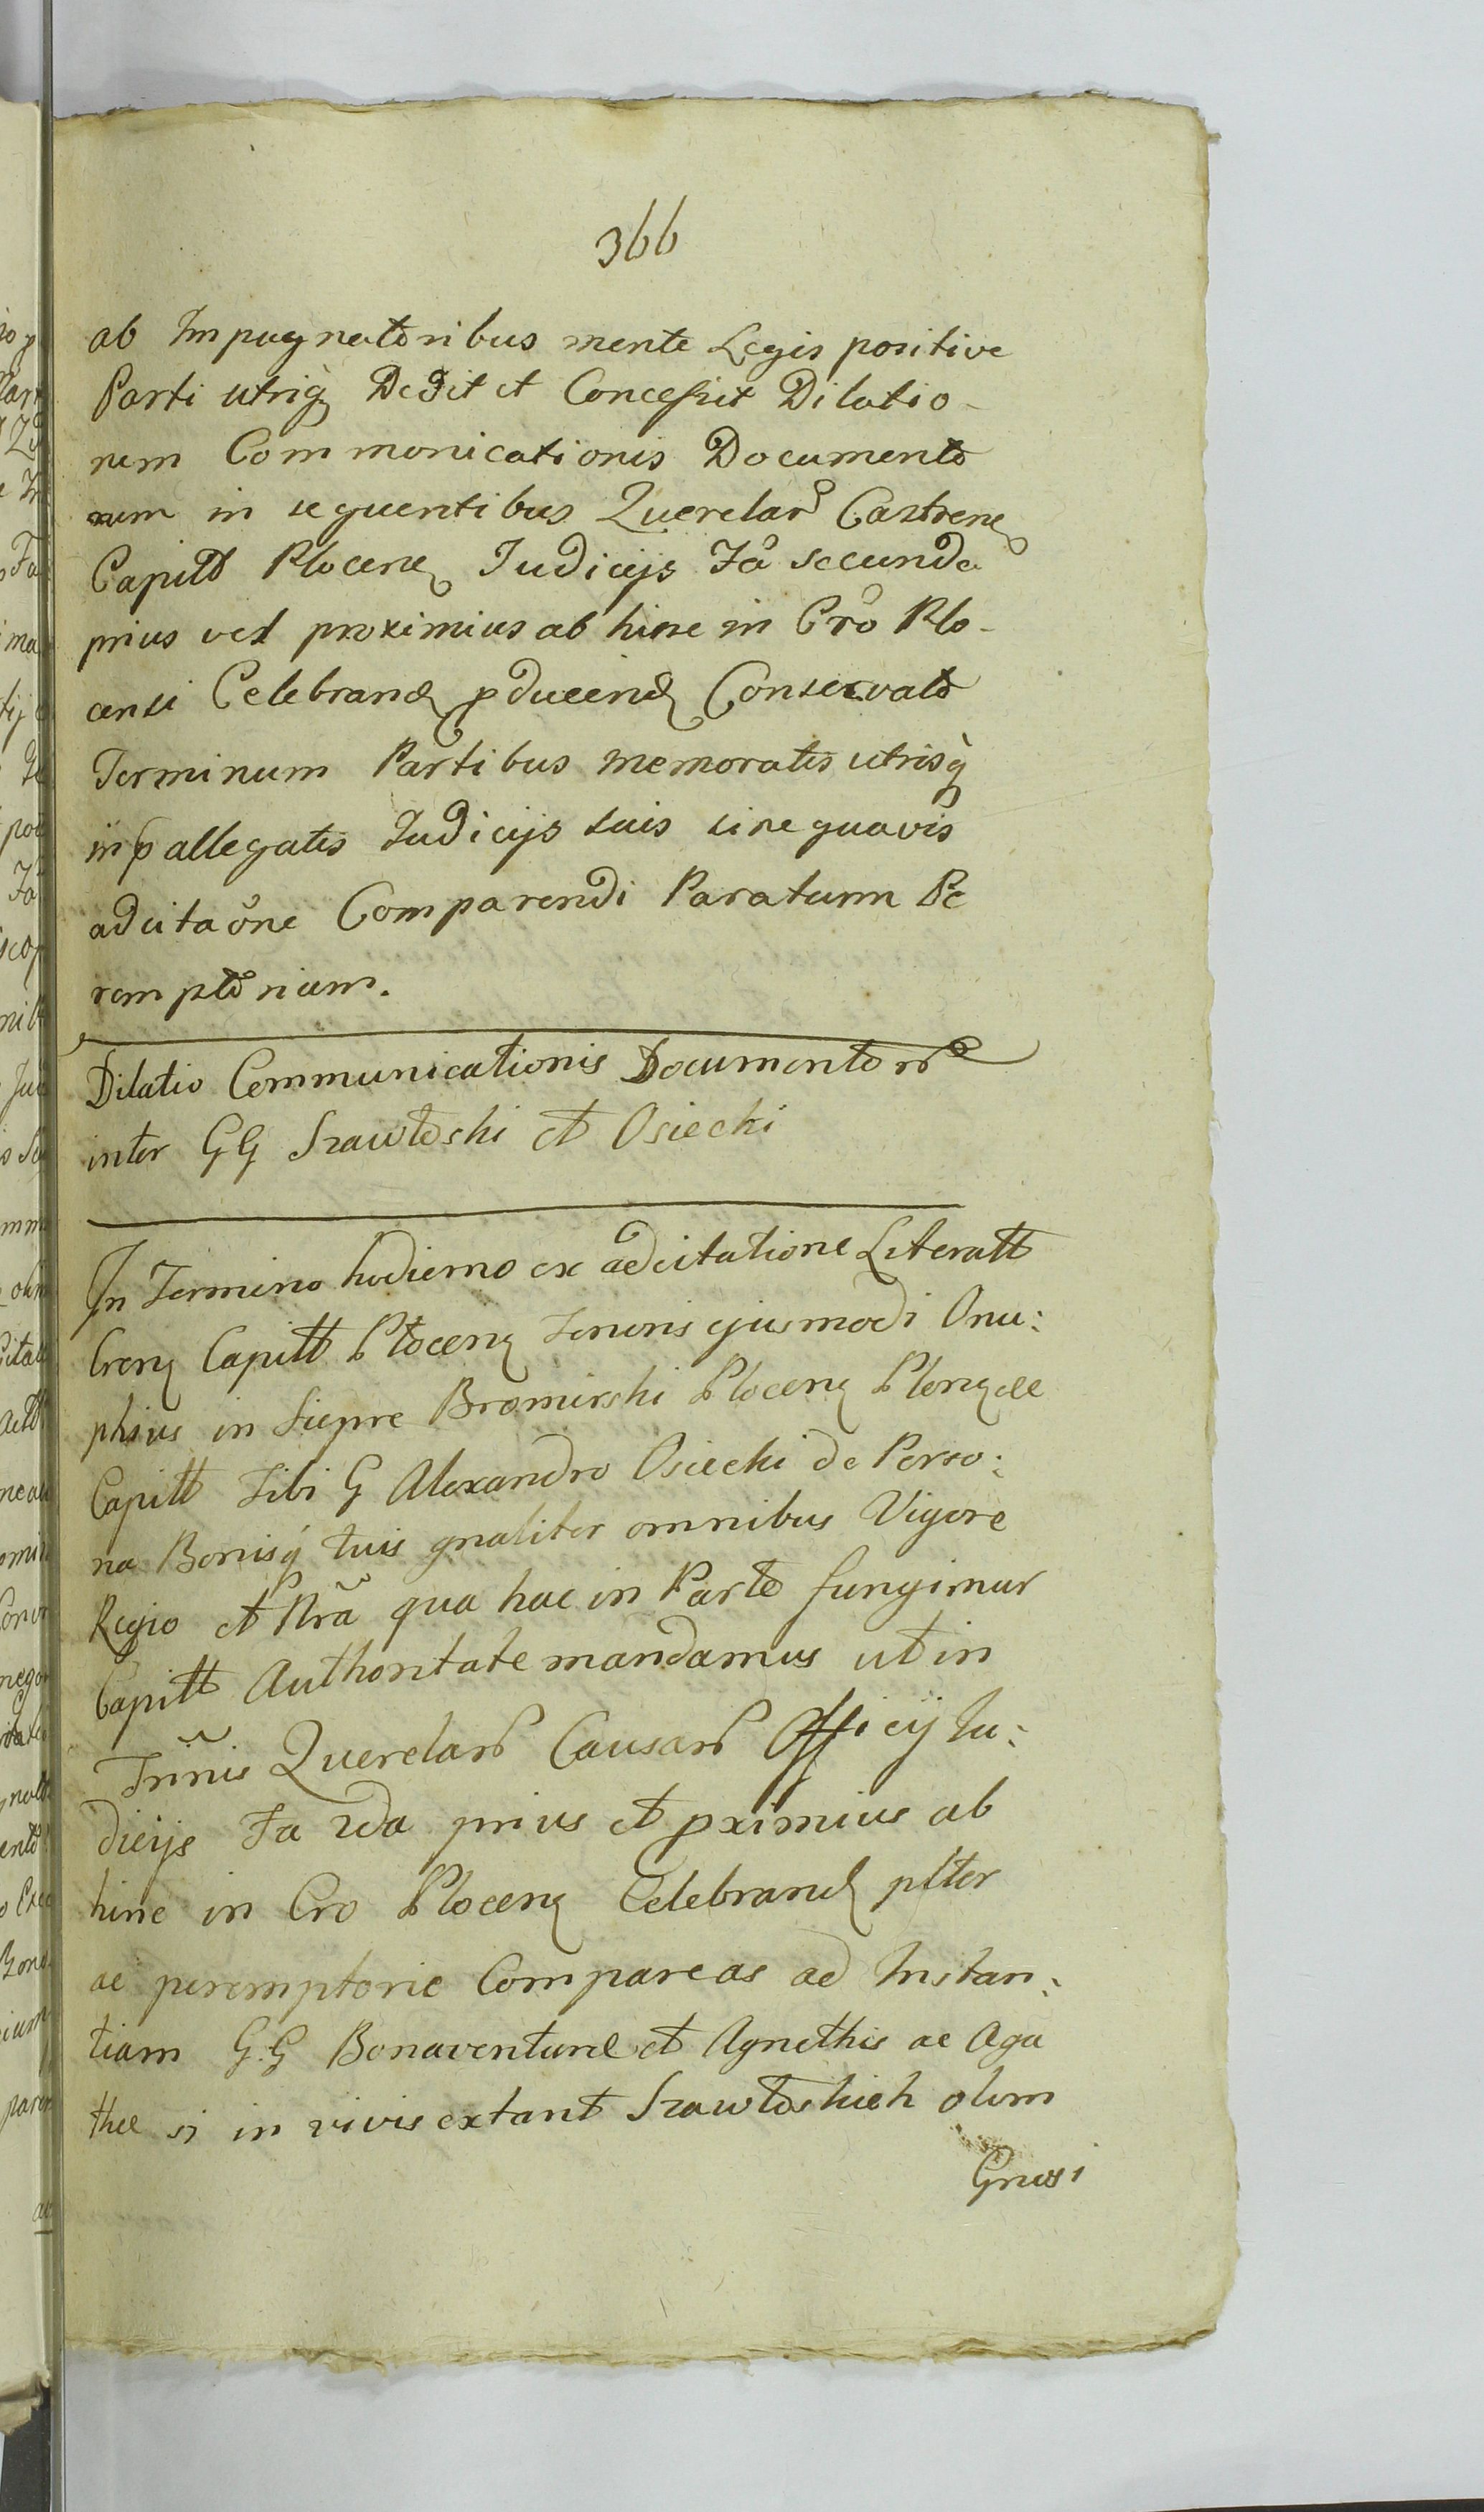 366
ab Impugnatoribus mente Legis positive
Parti utriq₃ Dedit et Concessit Dilatio-
nem Commonicationis Documento
rum in sequentibus Querelar Castrens
Capitt Plocens Judicijs Fa secunda
prius vel proximius ab hinc in Cro Plo-
censi Celebrand pducend Conservato
Terminum Partibus memoratis utrisq̀
in pallegatis Judicijs suis sine quavis
adcitaone Comparendi Paratum Pe
remptorium.
Dilatio Communicationis Documentorr
inter GG Szawłoski et Osiecki
In Termino hodierno ex adcitatione Literatt
Crens Capitt Plocens Tenoris ejusmodi Onu:
phius in Siepre Bromirski Plocens Plensce
Capitt Tibi G Alexandro Osiecki de Perso:
na Bonisq́ tuis gnaliter omnibus Vigore
Regio et Nrã qua hac in Parte fungimur
Capitt Authoritate mandamus ut in
Trinis Querelarr Causarr Officij Iu:
dicijs Fa 2da prius et pximius ab
hinc in Cro Plocens Celebrand plter
ac peremptorie Compareas ad Instan:
tiam G.G Bonaventuræ et Agnethis ac Aga
thæ si in vivis extant Szawłoskich olim
Grussi